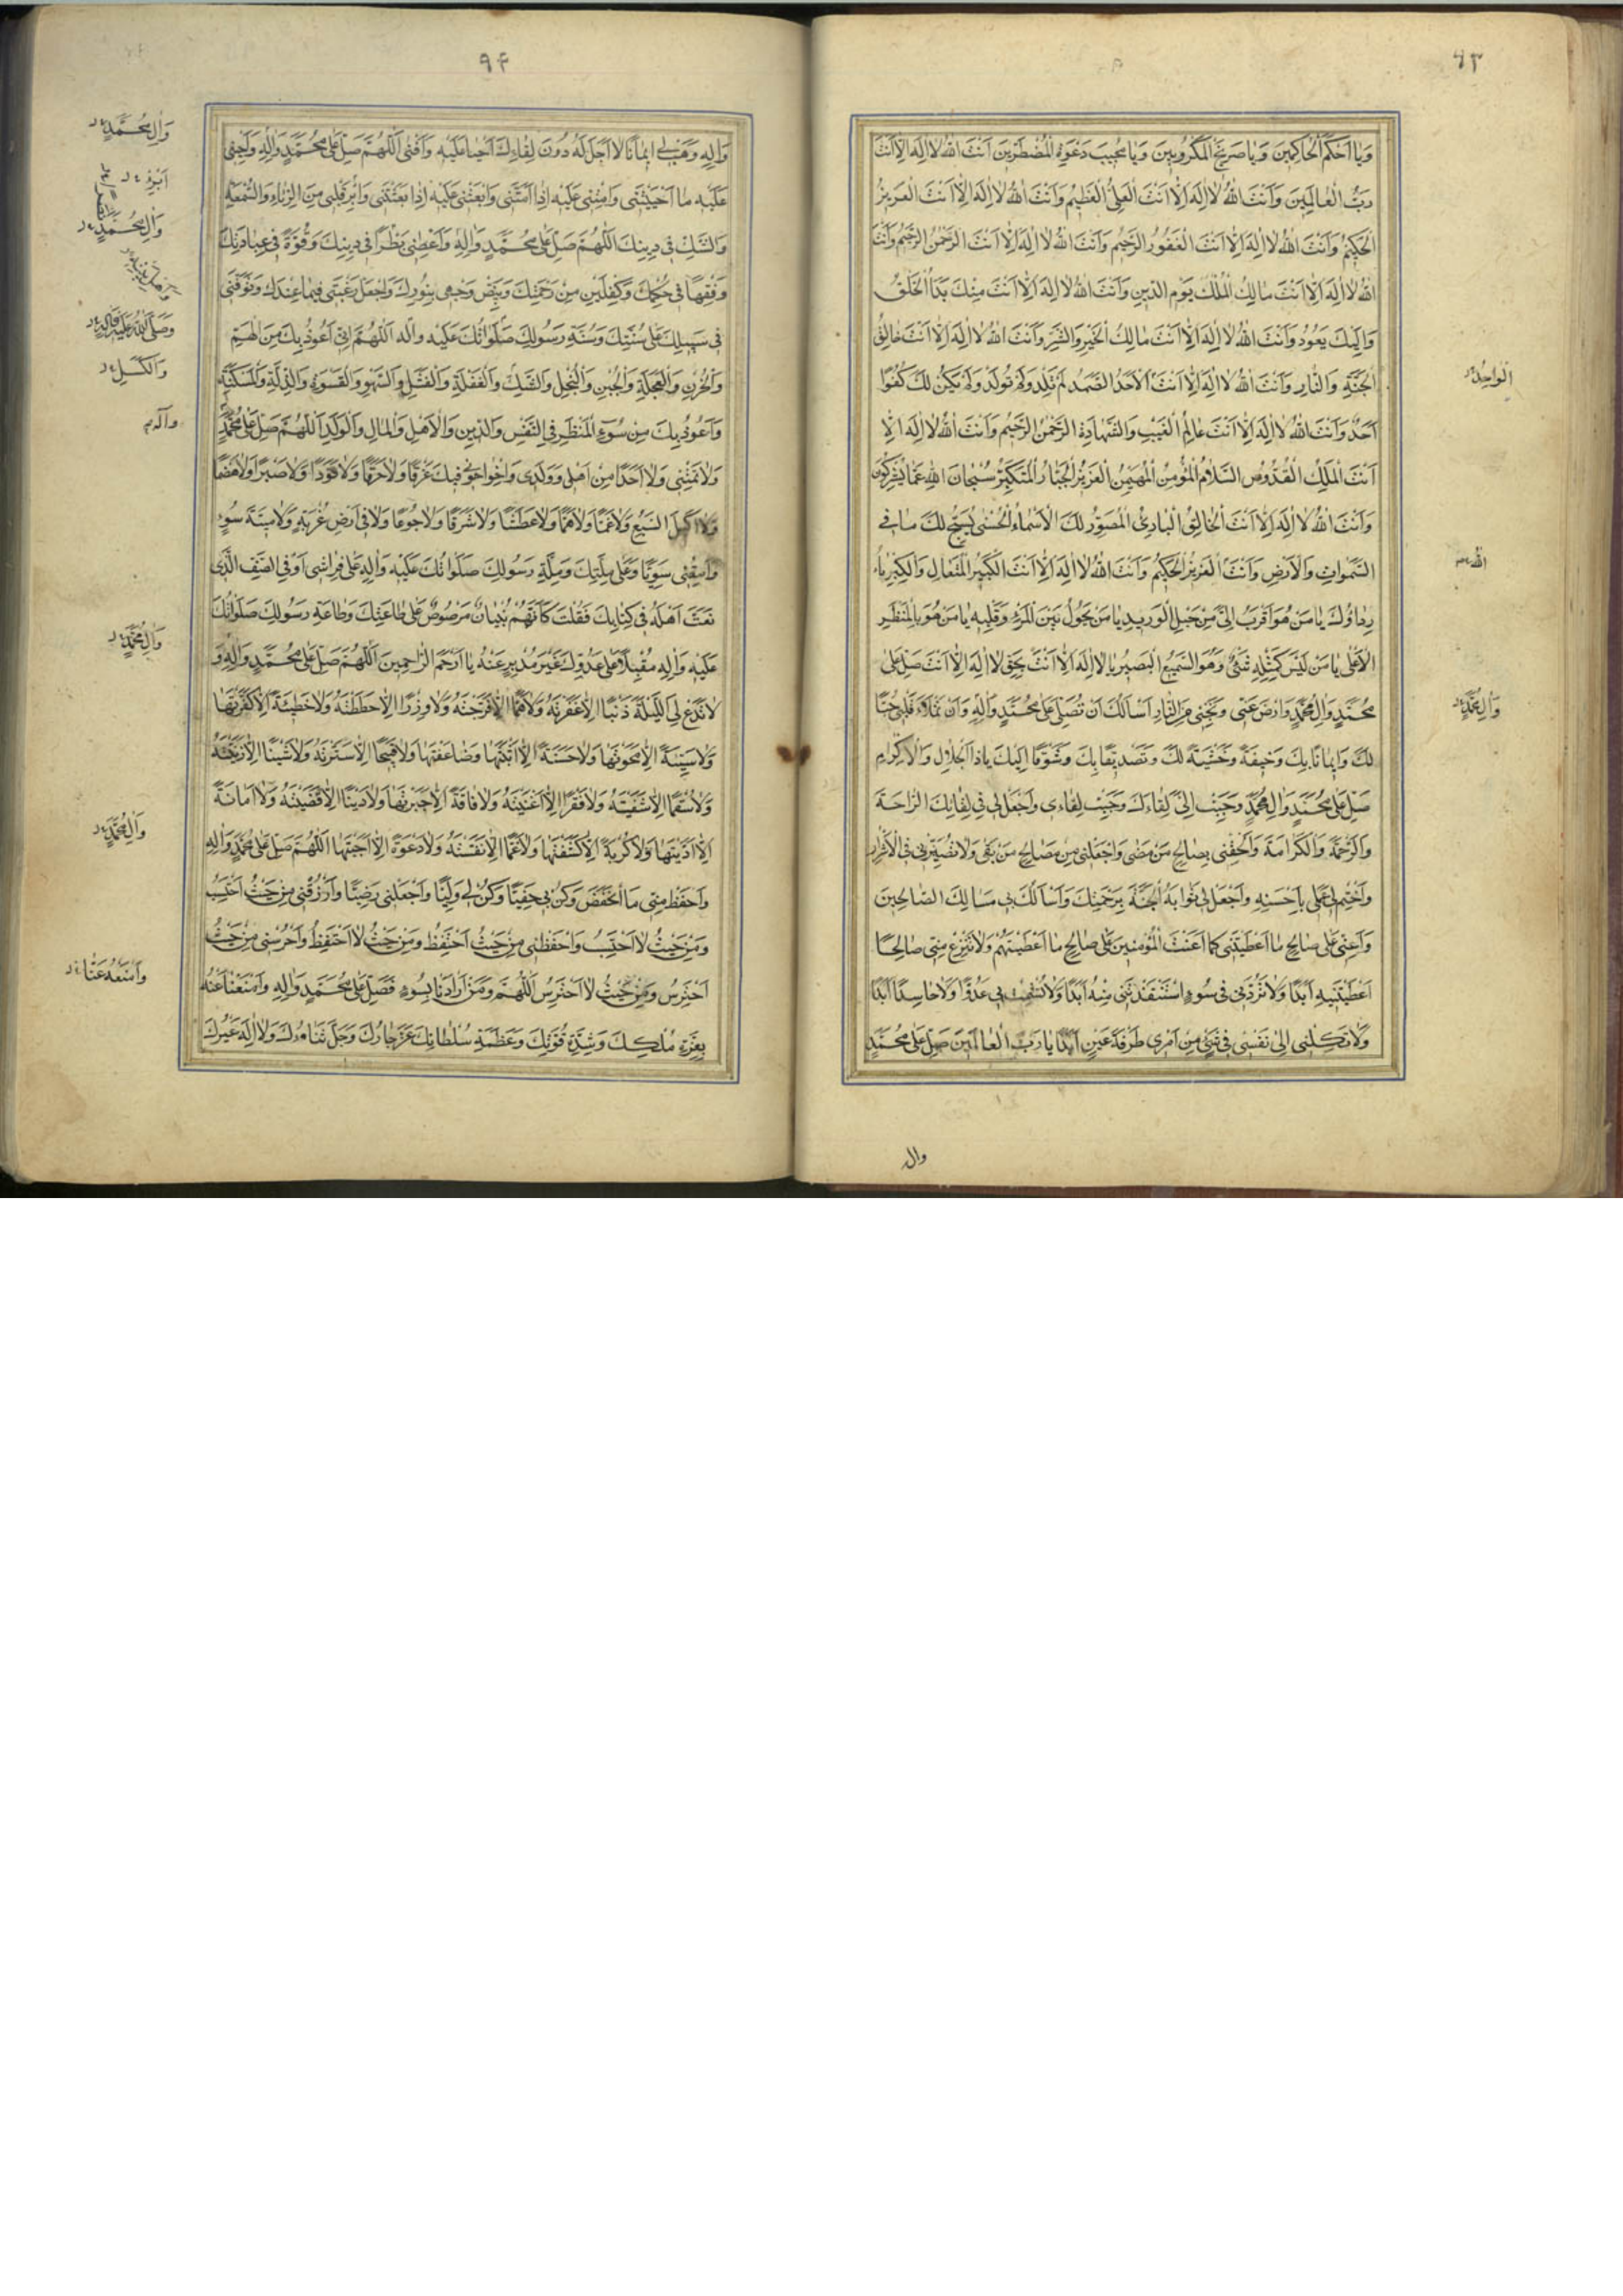 ۹۳
وَيَا أَحْكَمَ الْحَاكِمِينَ وَيَا صَرِيخَ الْمَكْرُوبِينَ وَيَا مُجِيبَ دَعْوَةِ الْمُضْطَرِّينَ أَنْتَ اللهُ لَا إِلَهَ إِلَّا أَنْتَ
رَبُّ الْعَالَمِينَ وَأَنْتَ اللهُ لَا إِلَهَ إِلَّا أَنْتَ الْعَلِيُّ الْعَظِيمُ وَأَنْتَ اللهُ لَا إِلَهَ إِلَّا أَنْتَ الْعَزِيزُ
الْحَكِيمُ وَأَنْتَ اللهُ لَا إِلَهَ إِلَّا أَنْتَ الْغَفُورُ الرَّحِيمُ وَأَنْتَ اللهُ لَا إِلَهَ إِلَّا أَنْتَ الرَّحْمَنُ الرَّحِيمُ وَأَنْتَ
اللهُ لَا إِلَهَ إِلَّا أَنْتَ مَالِكُ الْمُلْكِ يَوْمِ الدِّينِ وَأَنْتَ اللهُ لَا إِلَهَ إِلَّا أَنْتَ مِنْكَ بَدَأَ الْخَلْقُ
وَإِلَيْكَ يَعُودُ وَأَنْتَ اللهُ لَا إِلَهَ إِلَّا أَنْتَ مَالِكُ الْخَيْرِ وَالشَّرِّ وَأَنْتَ اللهُ لَا إِلَهَ إِلَّا أَنْتَ خَالِقُ
الْجَنَّةِ وَالنَّارِ وَأَنْتَ اللهُ لَا إِلَهَ إِلَّا أَنْتَ الْأَحَدُ الصَّمَدُ لَمْ تَلِدْ وَلَمْ تُولَدْ وَلَمْ يَكُنْ لَكَ كُفُوًا
الْوَاحِدُ
أَحَدٌ وَأَنْتَ اللهُ لَا إِلَهَ إِلَّا أَنْتَ عَالِمُ الْغَيْبِ وَالشَّهَادَةِ الرَّحْمَنُ الرَّحِيمُ وَأَنْتَ اللهُ لَا إِلَهَ إِلَّا
أَنْتَ الْمَلِكُ الْقُدُّوسُ السَّلَامُ الْمُؤْمِنُ الْمُهَيْمِنُ الْعَزِيزُ الْجَبَّارُ الْمُتَكَبِّرُ سُبْحَانَ اللهِ عَمَّا يُشْرِكُونَ
وَأَنْتَ اللهُ لَا إِلَهَ إِلَّا أَنْتَ الْخَالِقُ الْبَارِئُ الْمُصَوِّرُ لَكَ الْأَسْمَاءُ الْحُسْنَى يُسَبِّحُ لَكَ مَا فِي
السَّمَوَاتِ وَالْأَرْضِ وَأَنْتَ الْعَزِيزُ الْحَكِيمُ وَأَنْتَ اللهُ لَا إِلَهَ إِلَّا أَنْتَ الْكَبِيرُ الْمُتَعَالِ وَالْكِبْرِيَاءُ
الله
رِدَاؤُكَ يَا مَنْ هُوَ أَقْرَبُ إِلَيَّ مِنْ حَبْلِ الْوَرِيدِ يَا مَنْ يَحُولُ بَيْنَ الْمَرْءِ وَقَلْبِهِ يَا مَنْ هُوَ بِالْمَنْظَرِ
الْأَعْلَى يَا مَنْ لَيْسَ كَمِثْلِهِ شَيْءٌ وَهُوَ السَّمِيعُ الْبَصِيرُ يَا لَا إِلَهَ إِلَّا أَنْتَ بِحَقِّ لَا إِلَهَ إِلَّا أَنْتَ صَلِّ عَلَى
مُحَمَّدٍ وَآلِ مُحَمَّدٍ وَارْضَ عَنِّي وَنَجِّنِي مِنَ النَّارِ أَسْأَلُكَ أَنْ تُصَلِّيَ عَلَى مُحَمَّدٍ وَآلِهِ وَأَنْ تَمْلَأَ قَلْبِي حُبًّا
وَآلِ مُحَمَّدٍ
لَكَ وَإِيمَانًا بِكَ وَخِيفَةً وَخَشْيَةً لَكَ وَتَصْدِيقًا بِكَ وَشَوْقًا إِلَيْكَ يَا ذَا الْجَلَالِ وَالْإِكْرَامِ
صَلِّ عَلَى مُحَمَّدٍ وَآلِ مُحَمَّدٍ وَحَبِّبْ إِلَيَّ لِقَاءَكَ وَحَبِّبْ لِقَاءِي وَاجْعَلْ لِي فِي لِقَائِكَ الرَّاحَةَ
وَالرَّحْمَةَ وَالْكَرَامَةَ وَأَلْحِقْنِي بِصَالِحِ مَنْ مَضَى وَاجْعَلْنِي مِنْ صَالِحِ مَنْ بَقِيَ وَلَا تُصَيِّرْنِي فِي الْأَشْرَارِ
وَاخْتِمْ لِي عَمَلِي بِأَحْسَنِهِ وَاجْعَلْ لِي ثَوَابَهُ الْجَنَّةَ بِرَحْمَتِكَ وَاسْأَلُكَ بِي مَسَالِكَ الصَّالِحِينَ
وَأَعِنِّي عَلَى صَالِحِ مَا أَعْطَيْتَنِي كَمَا أَعَنْتَ الْمُؤْمِنِينَ عَلَى صَالِحِ مَا أَعْطَيْتَهُمْ وَلَا تَنْزِعْ مِنِّي صَالِحًا
أَعْطَيْتَنِيهِ أَبَدًا وَلَا تَرُدَّنِي فِي سُوءٍ اسْتَنْقَذْتَنِي مِنْهُ أَبَدًا وَلَا تُشْمِتْ بِي عَدُوًّا وَلَا حَاسِدًا أَبَدًا
وَلَا تَكِلْنِي إِلَى نَفْسِي فِي شَيْءٍ مِنْ أَمْرِي طَرْفَةَ عَيْنٍ أَبَدًا يَا رَبَّ الْعَالَمِينَ صَلِّ عَلَى مُحَمَّدٍ
وال
۹۴
وَآلِهِ وَهَبْ لِي إِيمَانًا لَا أَجَلَ لَهُ دُونَ لِقَاءِكَ أَحْيَا عَلَيْهِ وَأَفْنَى اللَّهُمَّ صَلِّ عَلَى مُحَمَّدٍ وَآلِهِ وَأَحْيِنِي
وَآلِ مُحَمَّدٍ
عَلَيْهِ مَا أَحْيَيْتَنِي وَأَمِتْنِي عَلَيْهِ إِذَا أَمَتَّنِي وَابْعَثْنِي عَلَيْهِ إِذَا بَعَثْتَنِي وَأَبْرِ قَلْبِي مِنَ الرِّيَاءِ وَالسُّمْعَةِ
أَبْرِئْ
وَالشَّكِّ فِي دِينِكَ اللَّهُمَّ صَلِّ عَلَى مُحَمَّدٍ وَآلِهِ وَأَعْطِنِي نَظَرًا فِي دِينِكَ وَقُوَّةً فِي عِبَادَتِكَ
وَآلِ مُحَمَّدٍ
وَفِقْهًا فِي حُكْمِكَ وَكِفْلَيْنِ مِنْ رَحْمَتِكَ وَبَيِّضْ وَجْهِي بِنُورِكَ وَاجْعَلْ رَغْبَتِي فِيمَا عِنْدَكَ وَتَوَفَّنِي
فِي سَبِيلِكَ عَلَى سُنَّتِكَ وَسُنَّةِ رَسُولِكَ صَلَوَاتُكَ عَلَيْهِ وَآلِهِ اللَّهُمَّ إِنِّي أَعُوذُ بِكَ مِنَ الْهَمِّ
وَصَلَّى اللهُ عَلَيْهِ وَآلِهِ
وَالْحُزْنِ وَالْعَجَلَةِ وَالْجُبْنِ وَالْبُخْلِ وَالشَّكِّ وَالْغَفْلَةِ وَالْفَشَلِ وَالسَّهْوِ وَالْقَسْوَةِ وَالذِّلَّةِ وَالْمَسْكَنَةِ
وَالْكَسَلِ
وَأَعُوذُ بِكَ مِنْ سُوءِ الْمَنْظَرِ فِي النَّفْسِ وَالدِّينِ وَالْأَهْلِ وَالْمَالِ وَالْوَلَدِ اللَّهُمَّ صَلِّ عَلَى مُحَمَّدٍ
وآله
وَلَا تُمِتْنِي وَلَا أَحَدًا مِنْ أَهْلِي وَوَلَدِي وَإِخْوَانِي فِيكَ غَرَقًا وَلَا حَرَقًا وَلَا قَوَدًا وَلَا صَبْرًا وَلَا هَضْمًا
وَلَا أَكِيلَ السَّبُعِ وَلَا غَمًّا وَلَا هَمًّا وَلَا عَطَشًا وَلَا شَرَقًا وَلَا جُوعًا وَلَا فِي أَرْضِ غُرْبَةٍ وَلَا مِيتَةَ سُوءٍ
وَأَمِتْنِي سَوِيًّا وَعَلَى مِلَّتِكَ وَمِلَّةِ رَسُولِكَ صَلَوَاتُكَ عَلَيْهِ وَآلِهِ عَلَى فِرَاشِي أَوْ فِي الصَّفِّ الَّذِي
نَعَتَّ أَهْلَهُ فِي كِتَابِكَ فَقُلْتَ كَأَنَّهُمْ بُنْيَانٌ مَرْصُوصٌ عَلَى طَاعَتِكَ وَطَاعَةِ رَسُولِكَ صَلَوَاتُكَ
عَلَيْهِ وَآلِهِ مُقْبِلًا عَلَى عَدُوِّكَ غَيْرَ مُدْبِرٍ عَنْهُ يَا أَرْحَمَ الرَّاحِمِينَ اللَّهُمَّ صَلِّ عَلَى مُحَمَّدٍ وَآلِهِ وَ
وَآلِ مُحَمَّدٍ
لَا تَدَعْ لِيَ اللَّيْلَةَ ذَنْبًا إِلَّا غَفَرْتَهُ وَلَا هَمًّا إِلَّا فَرَّجْتَهُ وَلَا وِزْرًا إِلَّا حَطَطْتَهُ وَلَا خَطِيئَةً إِلَّا كَفَّرْتَهَا
وَلَا سَيِّئَةً إِلَّا مَحَوْتَهَا وَلَا حَسَنَةً إِلَّا أَثْبَتَّهَا وَضَاعَفْتَهَا وَلَا قَبِيحًا إِلَّا سَتَرْتَهُ وَلَا شَيْنًا إِلَّا زَيَّنْتَهُ
وَلَا سُقْمًا إِلَّا شَفَيْتَهُ وَلَا فَقْرًا إِلَّا أَغْنَيْتَهُ وَلَا فَاقَةً إِلَّا جَبَرْتَهَا وَلَا دَيْنًا إِلَّا قَضَيْتَهُ وَلَا أَمَانَةً
إِلَّا أَدَّيْتَهَا وَلَا كُرْبَةً إِلَّا كَشَفْتَهَا وَلَا غَمًّا إِلَّا نَفَّسْتَهُ وَلَا دَعْوَةً إِلَّا أَجَبْتَهَا اللَّهُمَّ صَلِّ عَلَى مُحَمَّدٍ وَآلِهِ
وَآلِ مُحَمَّدٍ
وَاحْفَظْ مِنِّي مَا انْخَفَضَ وَكُنْ بِي حَفِيًّا وَكُنْ لِي وَلِيًّا وَاجْعَلْنِي رَضِيًّا وَارْزُقْنِي مِنْ حَيْثُ أَحْتَسِبُ
وَمِنْ حَيْثُ لَا أَحْتَسِبُ وَاحْفَظْنِي مِنْ حَيْثُ أَحْتَفِظُ وَمِنْ حَيْثُ لَا أَحْتَفِظُ وَاحْرُسْنِي مِنْ حَيْثُ
أَحْتَرِسُ وَمِنْ حَيْثُ لَا أَحْتَرِسُ اللَّهُمَّ وَمَنْ أَرَادَنَا بِسُوءٍ فَصَلِّ عَلَى مُحَمَّدٍ وَآلِهِ وَامْنَعْنَا عَنْهُ
وَامْنَعْهُ عَنَّا
بِعِزَّةِ مُلْكِكَ وَشِدَّةِ قُوَّتِكَ وَعَظَمَةِ سُلْطَانِكَ عَزَّ جَارُكَ وَجَلَّ ثَنَاؤُكَ وَلَا إِلَهَ غَيْرُكَ